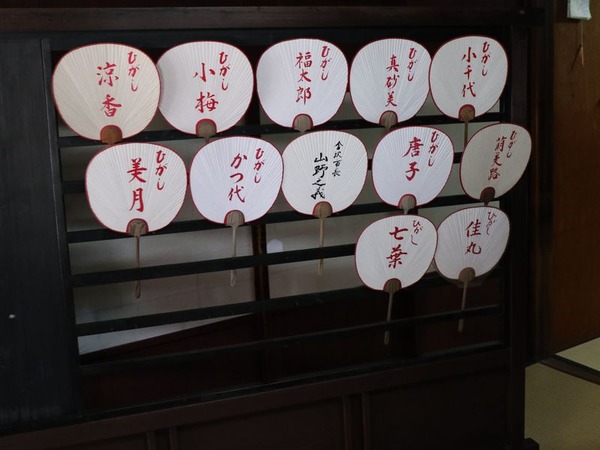 ひがし
涼香
ひがし
小梅
ひがし
福太郎
ひがし
真砂美
ひがし
小千代
ひがし
美月
ひがし
かつ代
金沢市長
山野之義
ひがし
唐子
ひがし
ひがし
七葉
ひがし
佳丸